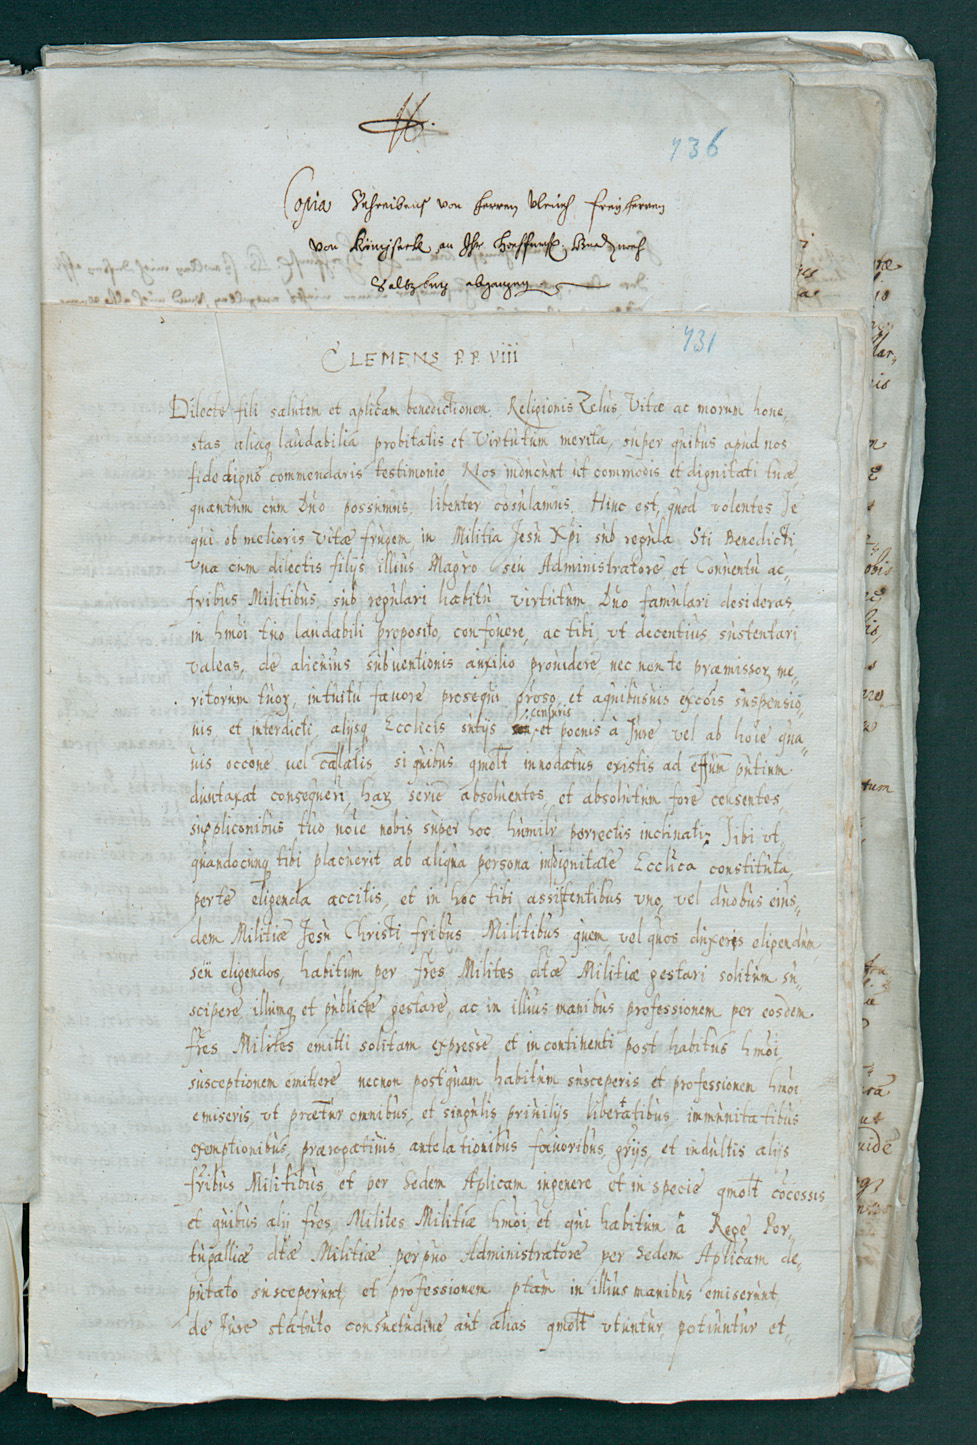 736
Copia Schreibens von Herren Ulrich Freyherren
von Königseck an Ihr Hochfürstl. Gnad nach
Saltzburg abgangen
731
CLEMENS P.P. VIII
Dilecte fili salutem et aplicam benedictionem Religionis Zelus, Vitæ ac morum hone,,
stas aliaq laudabilia probitatis et Virtutum merita, super quibus apud nos
fide digno commendaris testimonio Nos inducunt ut commodis et dignitati tuæ
quantum cum Dno possumus, libenter cosulamus, Hinc est, quod volentes Te
qui ob melioris vitæ frugem, in Militia Jesu Xpi sub regula Sti Benedicti
Vna cum dilectis filijs illius Magro seu Administratore et Conuentu ac
fribus Militibus, sub regulari habitu virtutum Dno famulari desideras
in hmoi tuo laudabili proposito, confouere, ac tibi, vt decentius sustentari
valeas, de alicuius subuentionis auxilio prouidere, nec non te præmissor me,,
ritorum tuor, intuitu fauore prosequi groso, et aquibusuis excois suspensio,,
nis et interdicti, alijsq Ecclicis sntijs censuris et poenis à Jure vel ab hoie qua,,
uis occone uel ca lalatis si quibus qmolt innodatus existis ad effum pntium
duntaxat consequen, har serie absoluentes, et absolutum fore censentes
supplicunibus tuo noie nobis super hoc humilr porrectis inclinati; Tibi vt,
quandocunq tibi placuerit ab aliqua persona in dignitate Ecclica constituta,
perte eligenda accitis, et in hoc tibi assistentibus vno, vel duobus eius,,
dem Militiæ Jesu Christi fribus Militibus quem, vel quos duxeris eligendum
seu eligendos, habitum per fres Milites dtæ Militiæ gestari solitum su,,
scipere, illumq et publicè gestare, ac in illius manibus professionem per eosdem
fres Milites emitti solitam expressè et incontinenti post habitus hmoi
susceptionem emittere necnon postquam habitum susceperis et professionem hmoi
emiseris, vt præfur omnibus, et singulis priuilijs libertatibus immunitatibus
exemptionibus, prærogatiuis, antelationibus fauoribus, grijs, et indultis alijs
fribus Militibus et per Sedem Aplicam ingenere et in specie qmolt cocessis
et quibus alii fres Milites Militiæ hmoi, et qui habitum à Rege Por,,
tugalliæ dtæ Militiæ perpuo Administratore per Sedem Aplicam de,,
putato susceperunt, et professionem ptam in illius manibus emiserunt,
de Jure statuto consuetudine aut alias qmolt vtuntur, potiuntur et,,